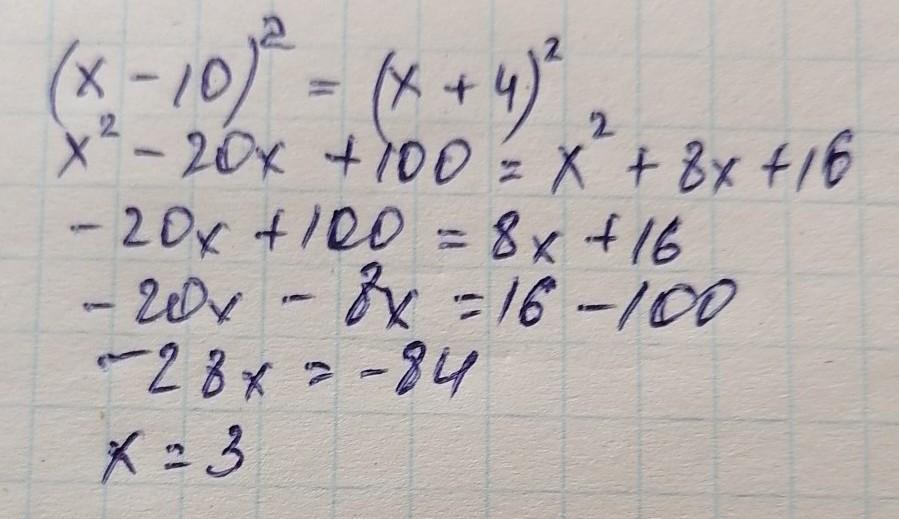 (x - 10)² = (x + 4)²
x² - 20x + 100 = x² + 8x + 16
- 20x + 100 = 8x + 16
- 20x - 8x = 16 - 100
- 28x = - 84
x = 3